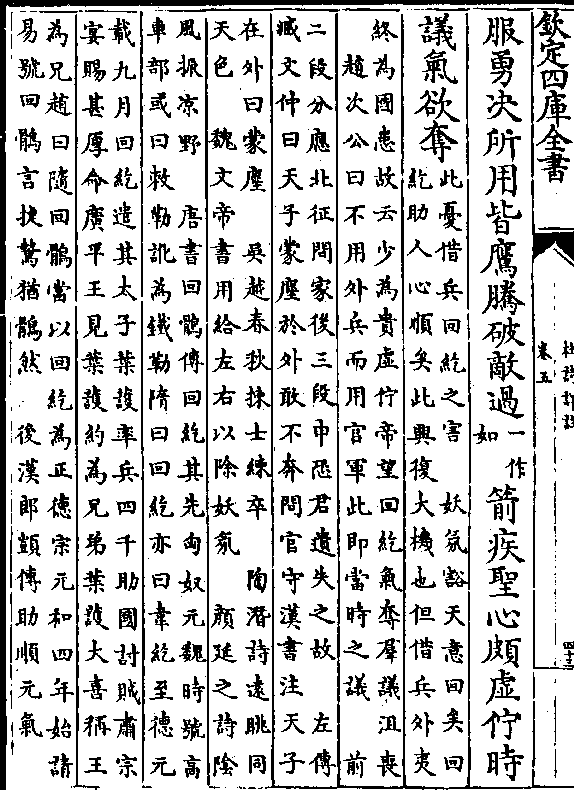 欽定四庫全書
杜詩詳註
卷五
四十三
服勇決所用皆鷹騰破敵過一作如箭疾聖心頗虛佇時
議氣欲奪此憂借兵回紇之害　妖氛豁天意回矣回
紇助人心順矣此興復大機也但借兵外夷
終為國患故云少為貴虛佇帝望回紇氣奪羣議沮喪
趙次公曰不用外兵而用官軍此即當時之議　前
二段分應北征問家後三段申恐君遺失之故　左傳
臧文仲曰天子蒙塵於外敢不奔問官守漢書注天子
在外曰蒙塵　吳越春秋拣士練卒　陶潛詩遠眺同
天色　魏文帝書用給左右以除妖氛　顏延之詩陰
風振凉野　唐書回鶻傳回紇其先匈奴元魏時號高
車部或曰敕勒訛為鐵勒隋曰回紇亦曰韋紇至德元
載九月回紇遣其太子葉護率兵四千助國討賊肅宗
宴賜甚厚命廣平王見葉護約為兄弟葉護大喜稱王
為兄趙曰隨回鶻當以回紇為正德宗元和四年始請
易號回鶻言捷鷙猶鶻然　後漢郎顗傳助順元氣